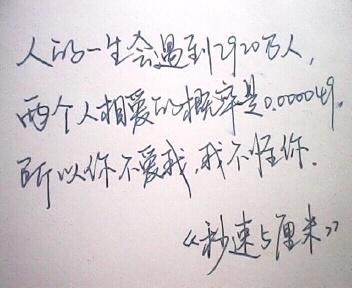 人的一生会遇到2920万人,
两个人相爱的概率是0.000049.
所以你不爱我,我不怪你.
《秒速5厘米》